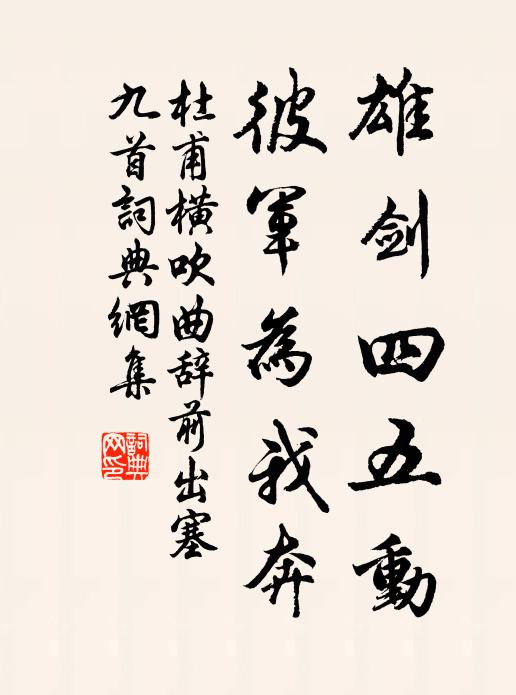 雄剑四五動
彼軍為我奔
杜甫橫吹曲辞前出塞
九首詞典網集
詞典
网印